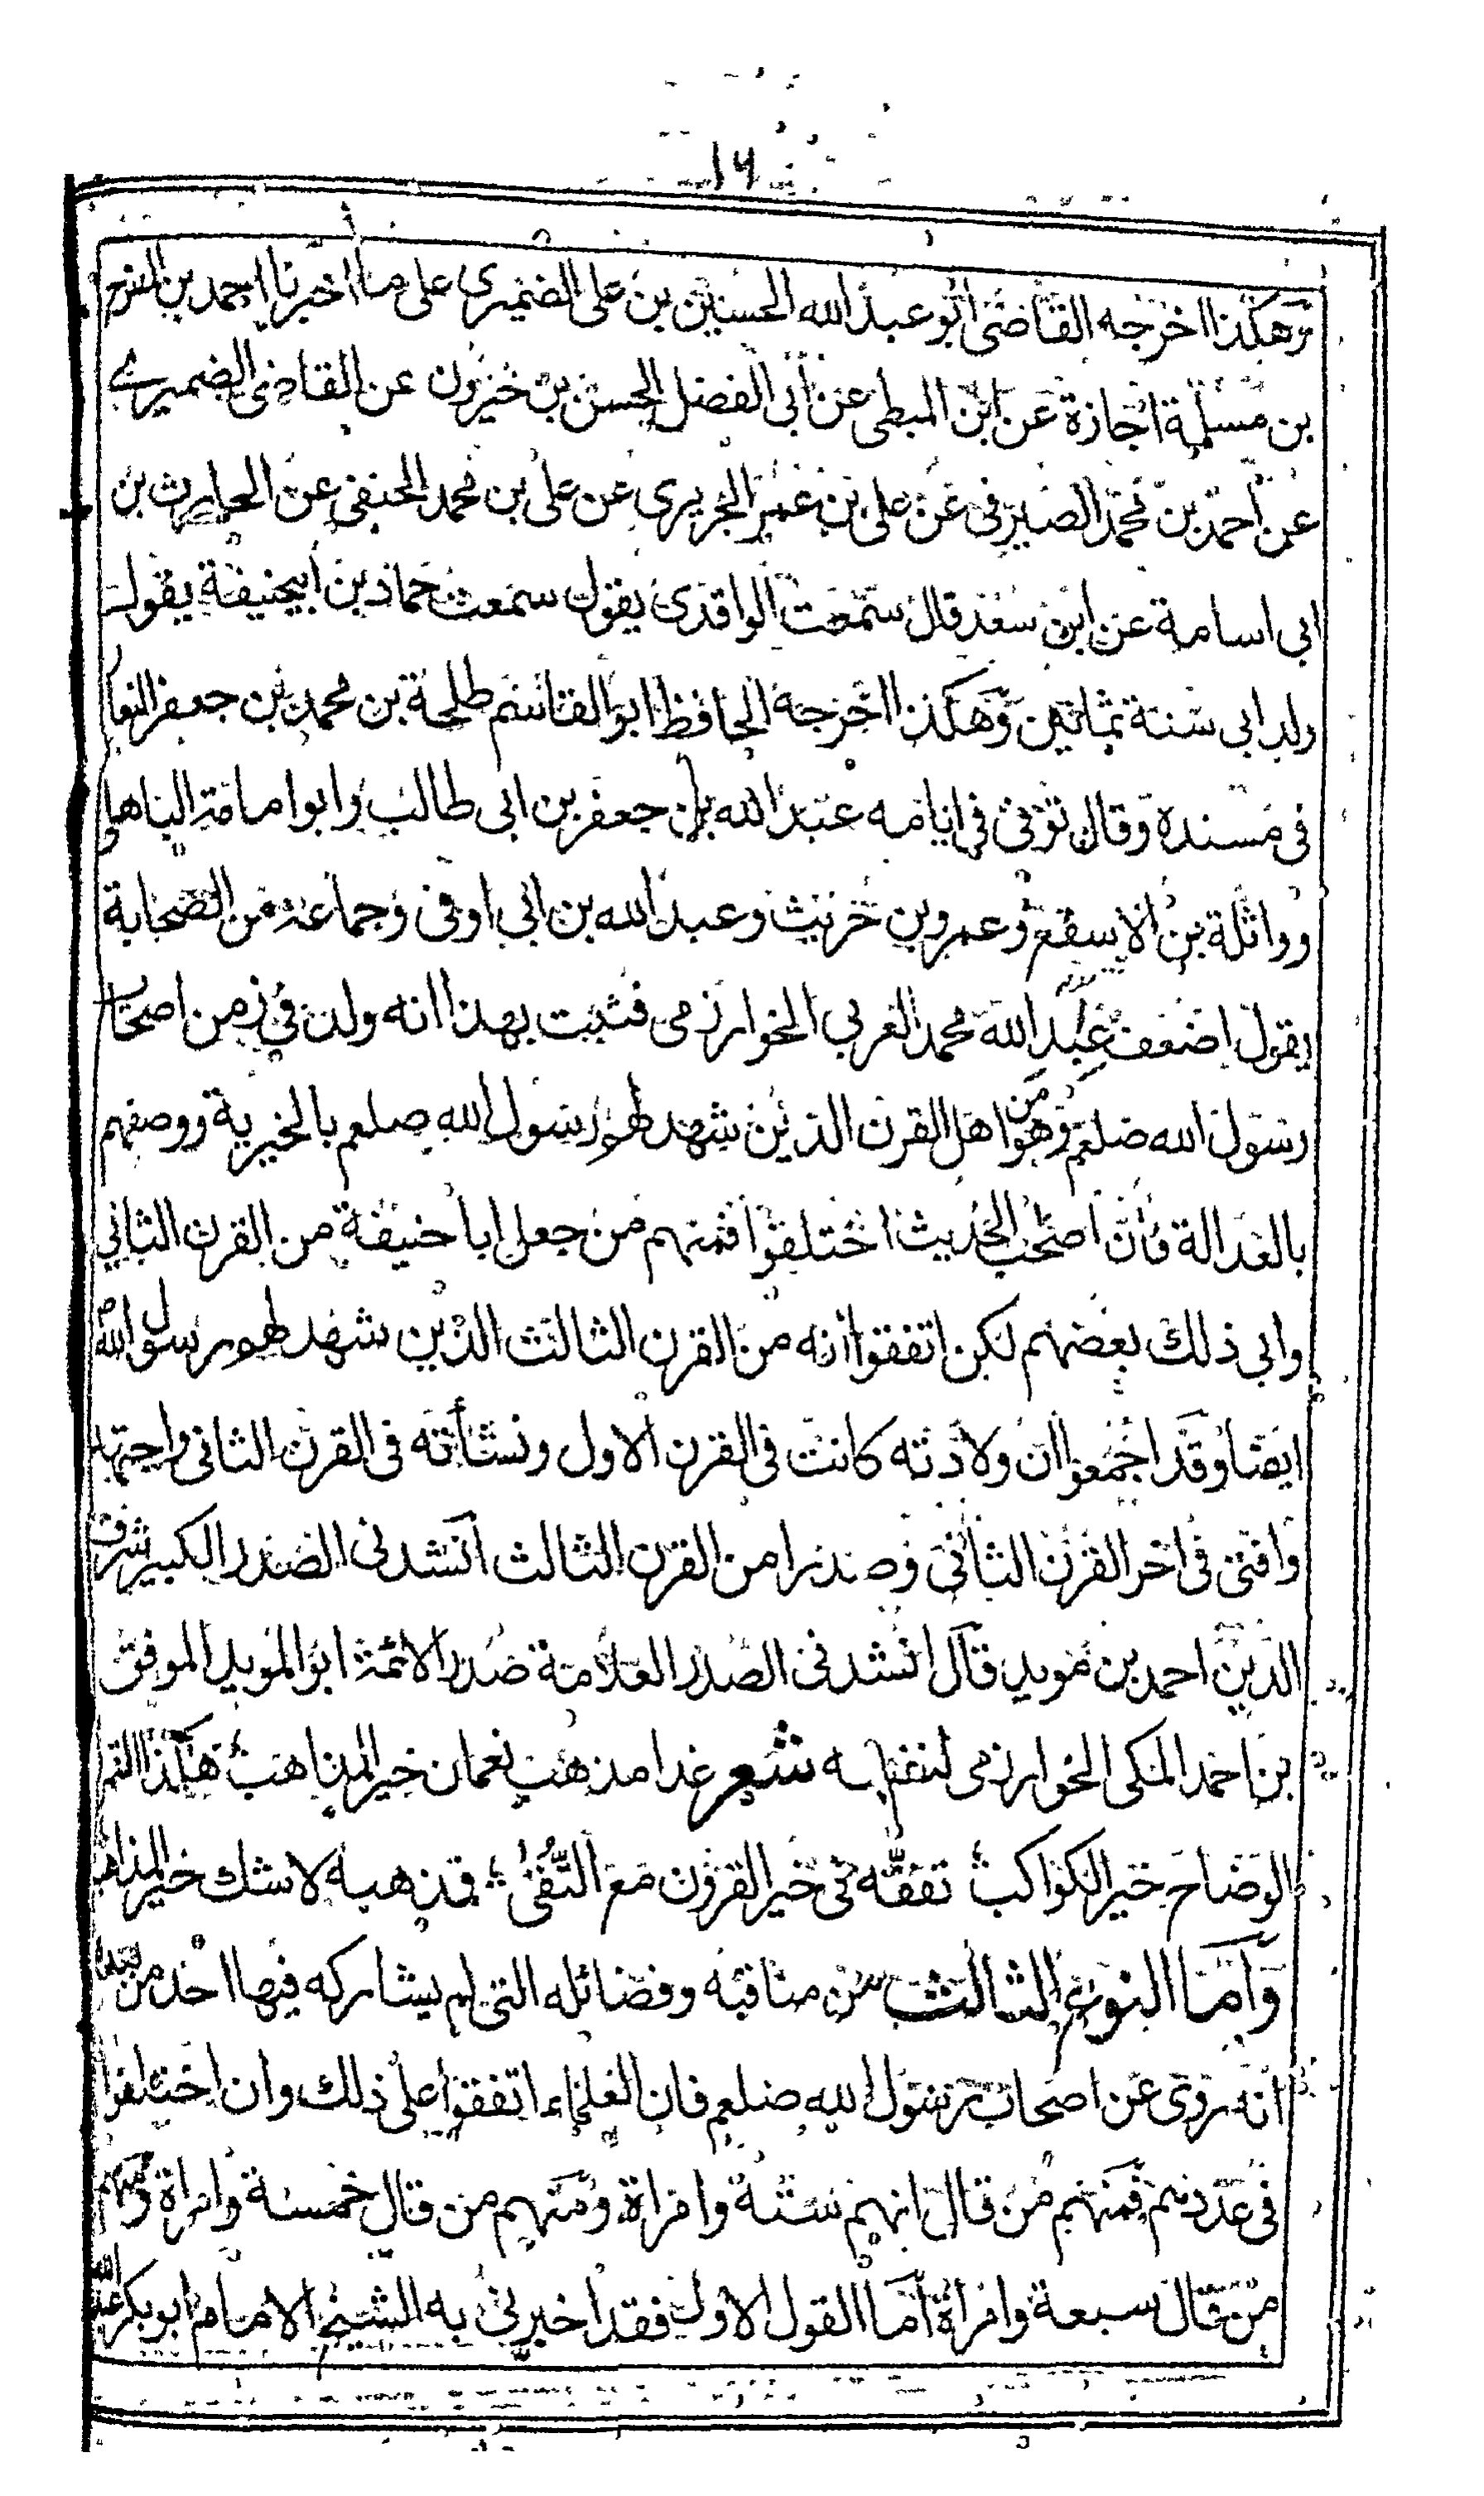 ١٦
وهكذا اخرجه القاضى ابو عبد الله الحسين بن على الضميرى على ما اخبرنا احمد بن المفرج
بن مسلمة اجازة عن ابن المبطى عن ابى الفضل الحسن بن خيرون عن القاضى الضميرے
عن احمد بن محمد الصيرفى عن على بن عمر الجريرى عن على بن محمد الحنفى عن الحارث بن
ابى اسامة عن ابن سعد قال سمعت الواقدى يقول سمعت حماد بن ابيحنيفة يقول
ولد ابى سنة ثمانين وهكذا اخرجه الحافظ ابو القاسم طلحة بن محمد بن جعفر
فى مسنده وقال توفى فى ايامه عبد الله بن جعفر بن ابى طالب وابو امامة الباهلى
وواثلة بن الاسقع وعمرو بن حريث وعبد الله بن ابى اوفى وجماعة من الصحابة
يقول اضعف عبيد الله محمد العربى الخوارزمى فثبت بهذا انه ولد فى زمن اصحاب
رسول الله صلعم وهو من اهل القرن الذين شهد لهم رسول الله صلعم بالخيرية ووصفهم
بالعدالة وان اصحب الحديث اختلفوا فمنهم من جعل ابا حنيفة من القرن الثانى
وابى ذلك بعضهم لكن اتفقوا انه من القرن الثالث الذين شهد لهم رسول الله ص
ايضا وقد اجمعوا ان ولادته كانت فى القرن الاول ونشأته فى القرن الثانى واجتهد
وافتى فى اخر القرن الثانى وصدرا من القرن الثالث انشدنى الصدر الكبير شرف
الدين احمد بن مويد قال انشدنى الصدر العلامة صدر الائمة ابو المويد الموفق
بن احمد المكى الخوارزمى لنفسه شعر غدا مذهب نعمان خير المذاهب ؛ هكذا القمر
الوضاح خير الكواكب ؛ تفقه فى خير القرون مع التقى ؛ فمذهبه لا شك خير المذاهب
واما النوع الثالث من مناقبه وفضائله التى لم يشاركه فيها احد من بعده
انه روى عن اصحاب رسول الله صلعم فان العلماء اتفقوا على ذلك وان اختلفوا
فى عددهم فمنهم من قال انهم ستة وامراة ومنهم من قال خمسة وامراة ومنهم
من قال سبعة وامراة اما القول الاول فقد اخبرنى به الشيخ الامام ابو بكر عبد الله